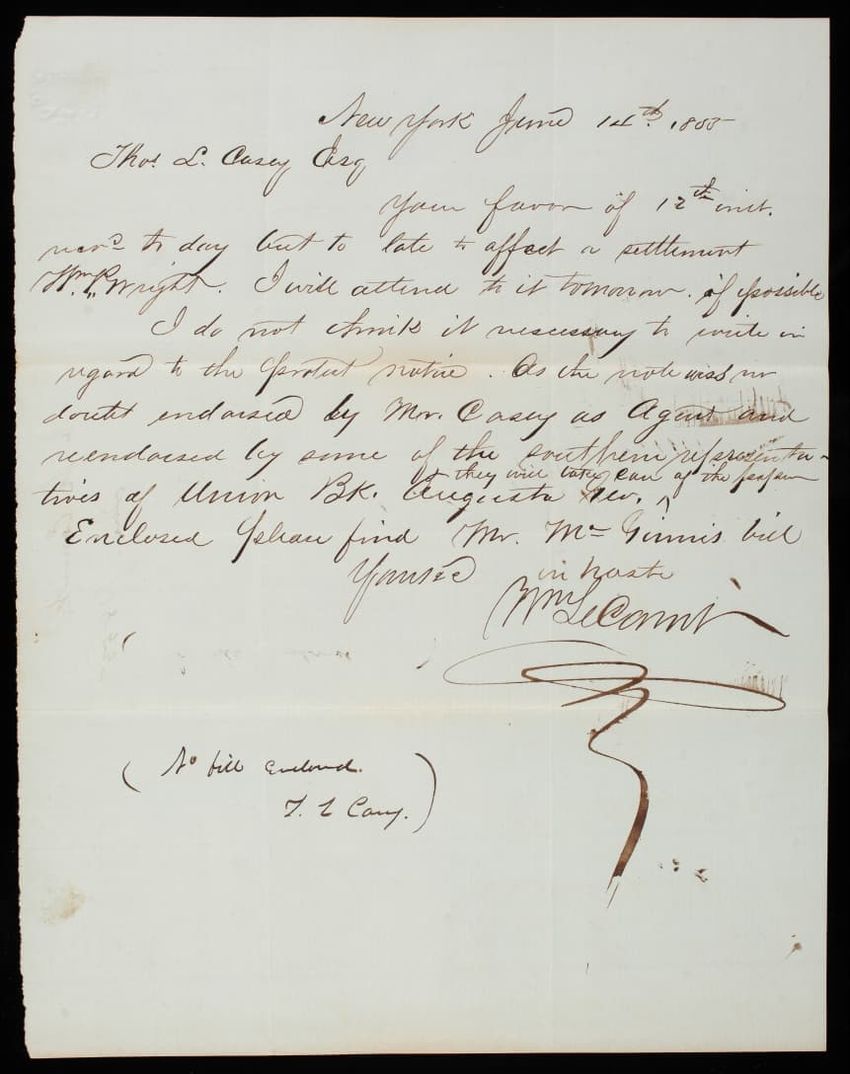 New York June 14th. 1855
Thos L. Casey Esq
Your favor of 12th inst.
recd to day but to late to affect a settlement
Wm. P. Wright. I will attend to it tomorrow. if possible
I do not think it necessary to write in
regard to the protest notice. As the note was no
doubt endorsed by Mr. Casey as Agent and
reendorsed by some of the southern representa-
they will take care of the
tives of Union Bk. of Augusta
Enclosed please find Mr. McGinnis bill
Yours in haste
Wm LeCount
(No bill enclosed.
T. L Casey.)